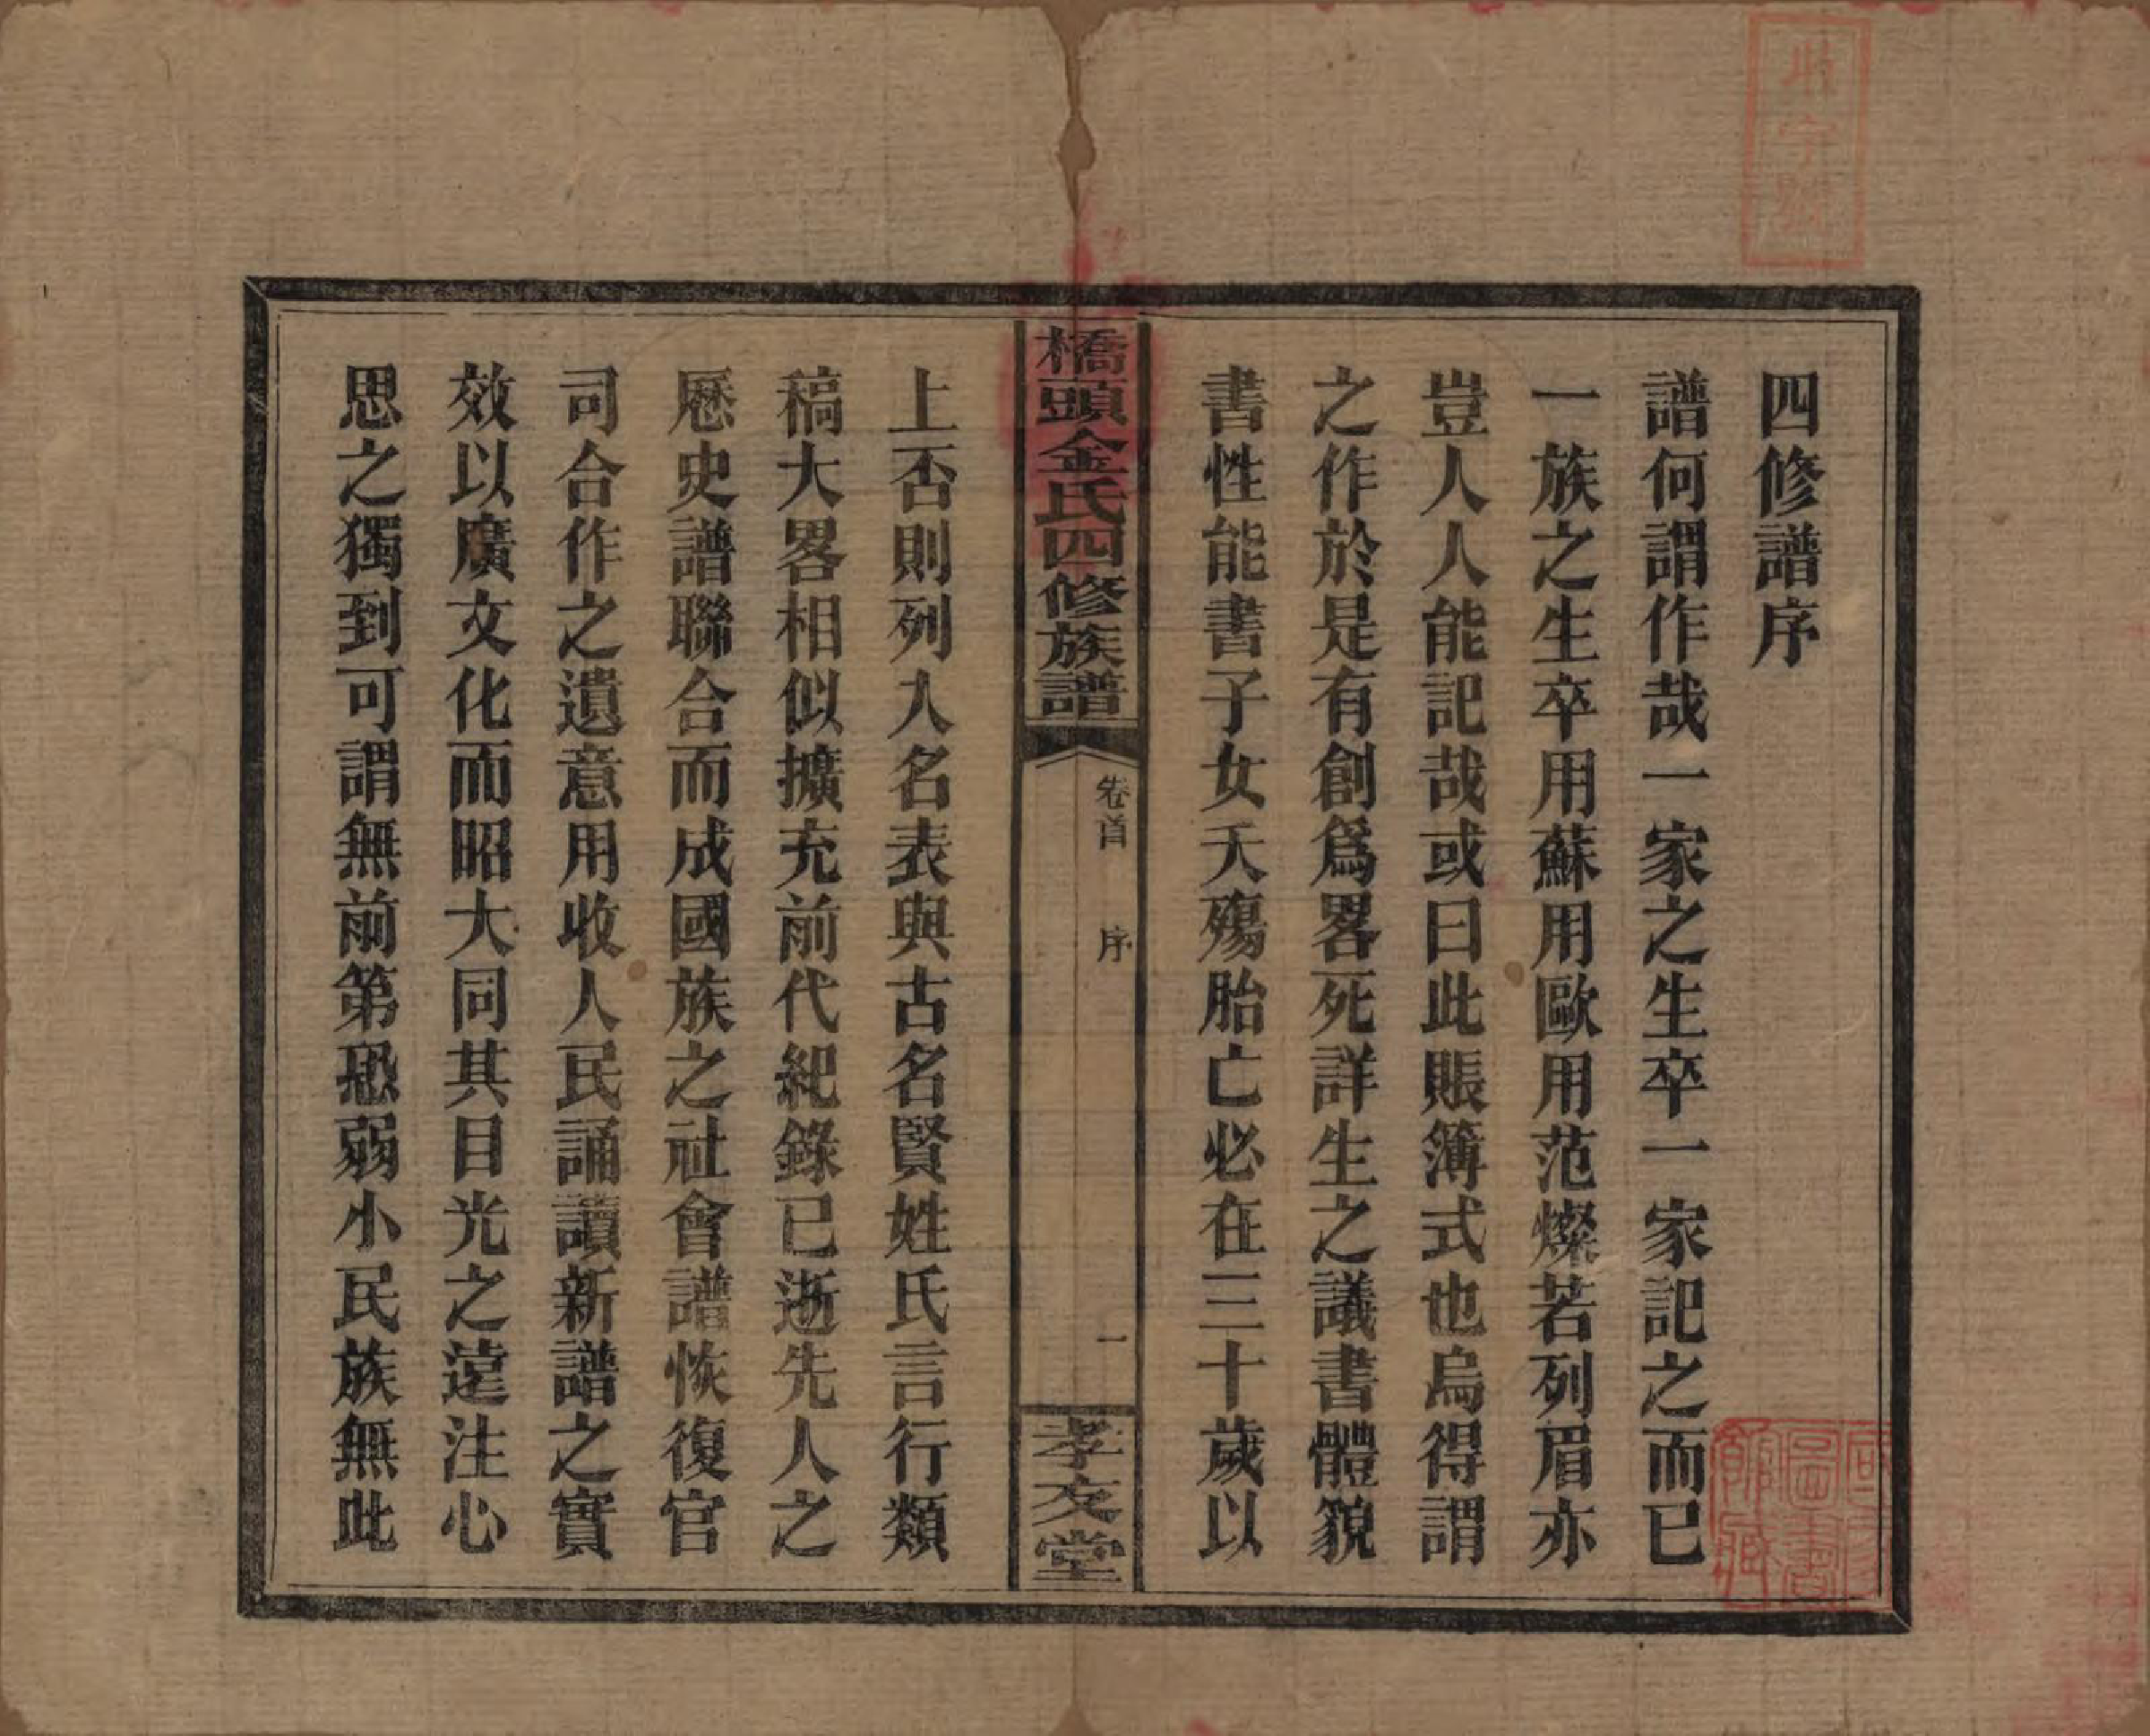 四修譜序
譜何謂作哉一家之生卒一家記之而已
一族之生卒用蘇用歐用范燦若列眉亦
豈人人能記哉或曰此賬簿式也烏得謂
之作於是有創爲畧死詳生之議書體貌
書性能書子女夭殤胎亡必在三十歲以
橋頭金氏四修族譜
卷首 序
一
孝友堂
上否則列人名表與古名賢姓氏言行類
稿大畧相似擴充前代紀錄已逝先人之
歷史譜聯合而成國族之社會譜恢復官
司合作之遺意用收人民誦讀新譜之實
效以廣文化而昭大同其目光之遠注心
思之獨到可謂無前第恐弱小民族無此
字號
國家圖書館藏